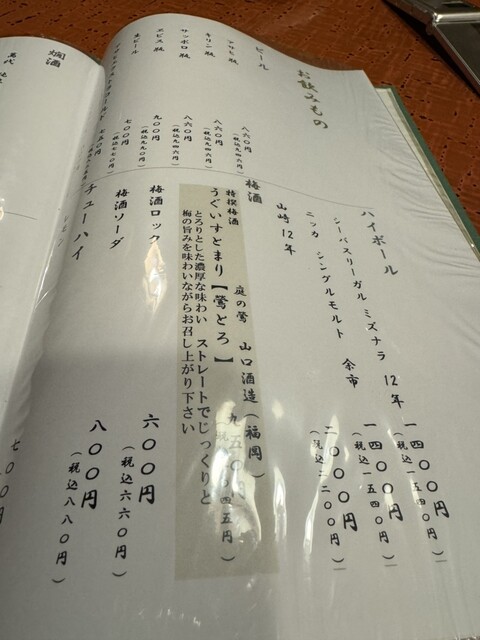 お飲みもの
ビール
アサヒ瓶 八六〇円
(税込九四六円)
キリン瓶 八六〇円
(税込九四六円)
サッポロ瓶 八六〇円
(税込九四六円)
ヱビス瓶 九〇〇円
(税込九九〇円)
生ビール 七〇〇円
(税込七七〇円)
七五〇円
ハイボール
シーバスリーガル ミズナラ 12年 一四〇〇円
(税込一五四〇円)
ニッカ シングルモルト 余市 一四〇〇円
(税込一五四〇円)
山崎 12年 二〇〇〇円
(税込二二〇〇円)
梅酒
特撰梅酒 庭の鶯 山口酒造(福岡)
うぐいすとまり【鶯とろ】 九五〇円
とろりとした濃厚な味わい ストレートでじっくりと
梅の旨みを味わいながらお召し上がり下さい
梅酒ロック 六〇〇円
(税込六六〇円)
梅酒ソーダ 八〇〇円
(税込八八〇円)
チューハイ
燗酒